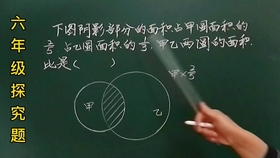 六年级探究题
下图阴影部分的面积占甲圆面积的
占乙圆面积的 甲乙两圆的面积
比是( )
甲×
甲
乙